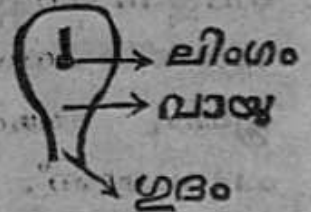 ലിംഗം
വായു
ഗുദം